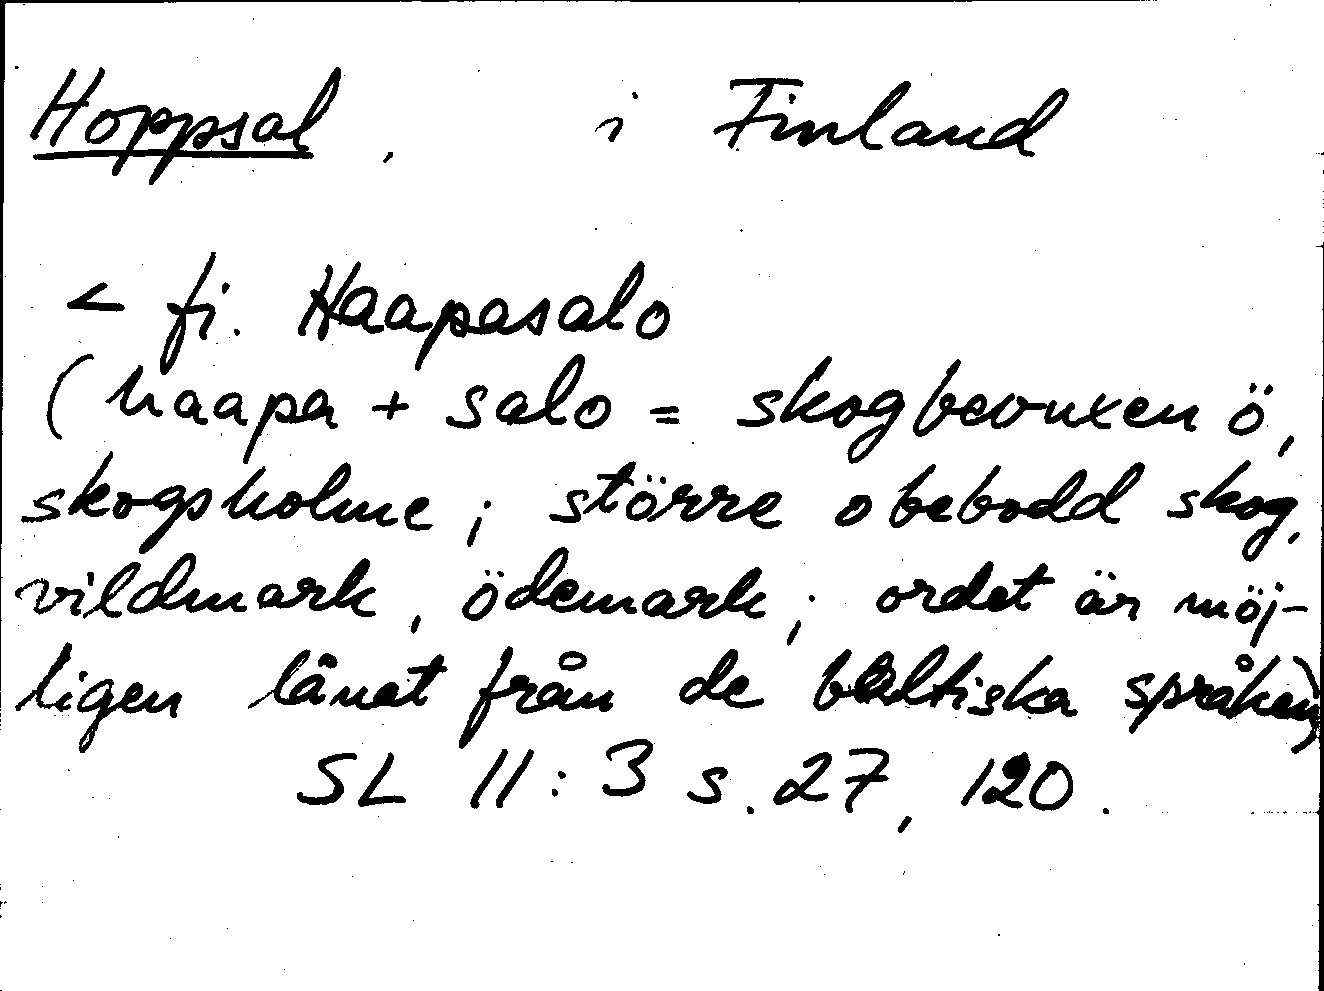 Hoppsal, i Finland
< fi. Haapasalo
(haapa + salo = skogbevuxen ö,
skogsholme; större obebodd skog,
vildmark, ödemark; ordet är möj-
ligen lånat från de baltiska språken)
SL 11:3 s. 27, 120.